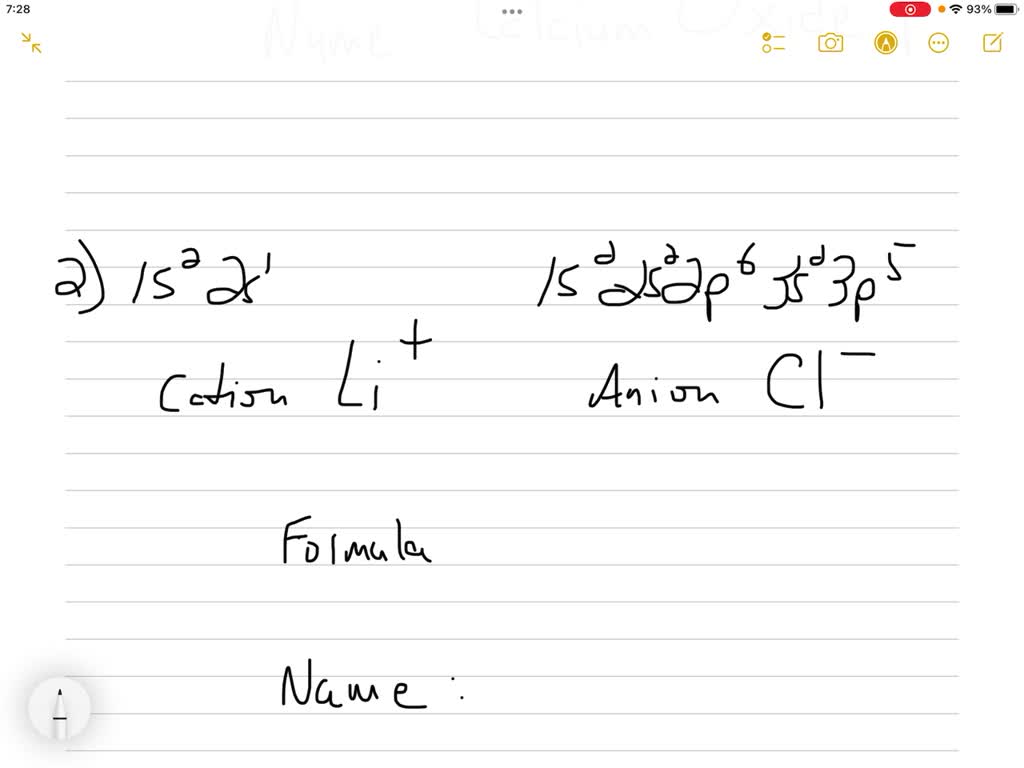 7:28
93%
Name Calcium Oxide
2) 1s² 2s¹ 1s² 2s² 2p⁶ 3s² 3p⁵
Cation Li⁺ Anion Cl⁻
Formula
Name :